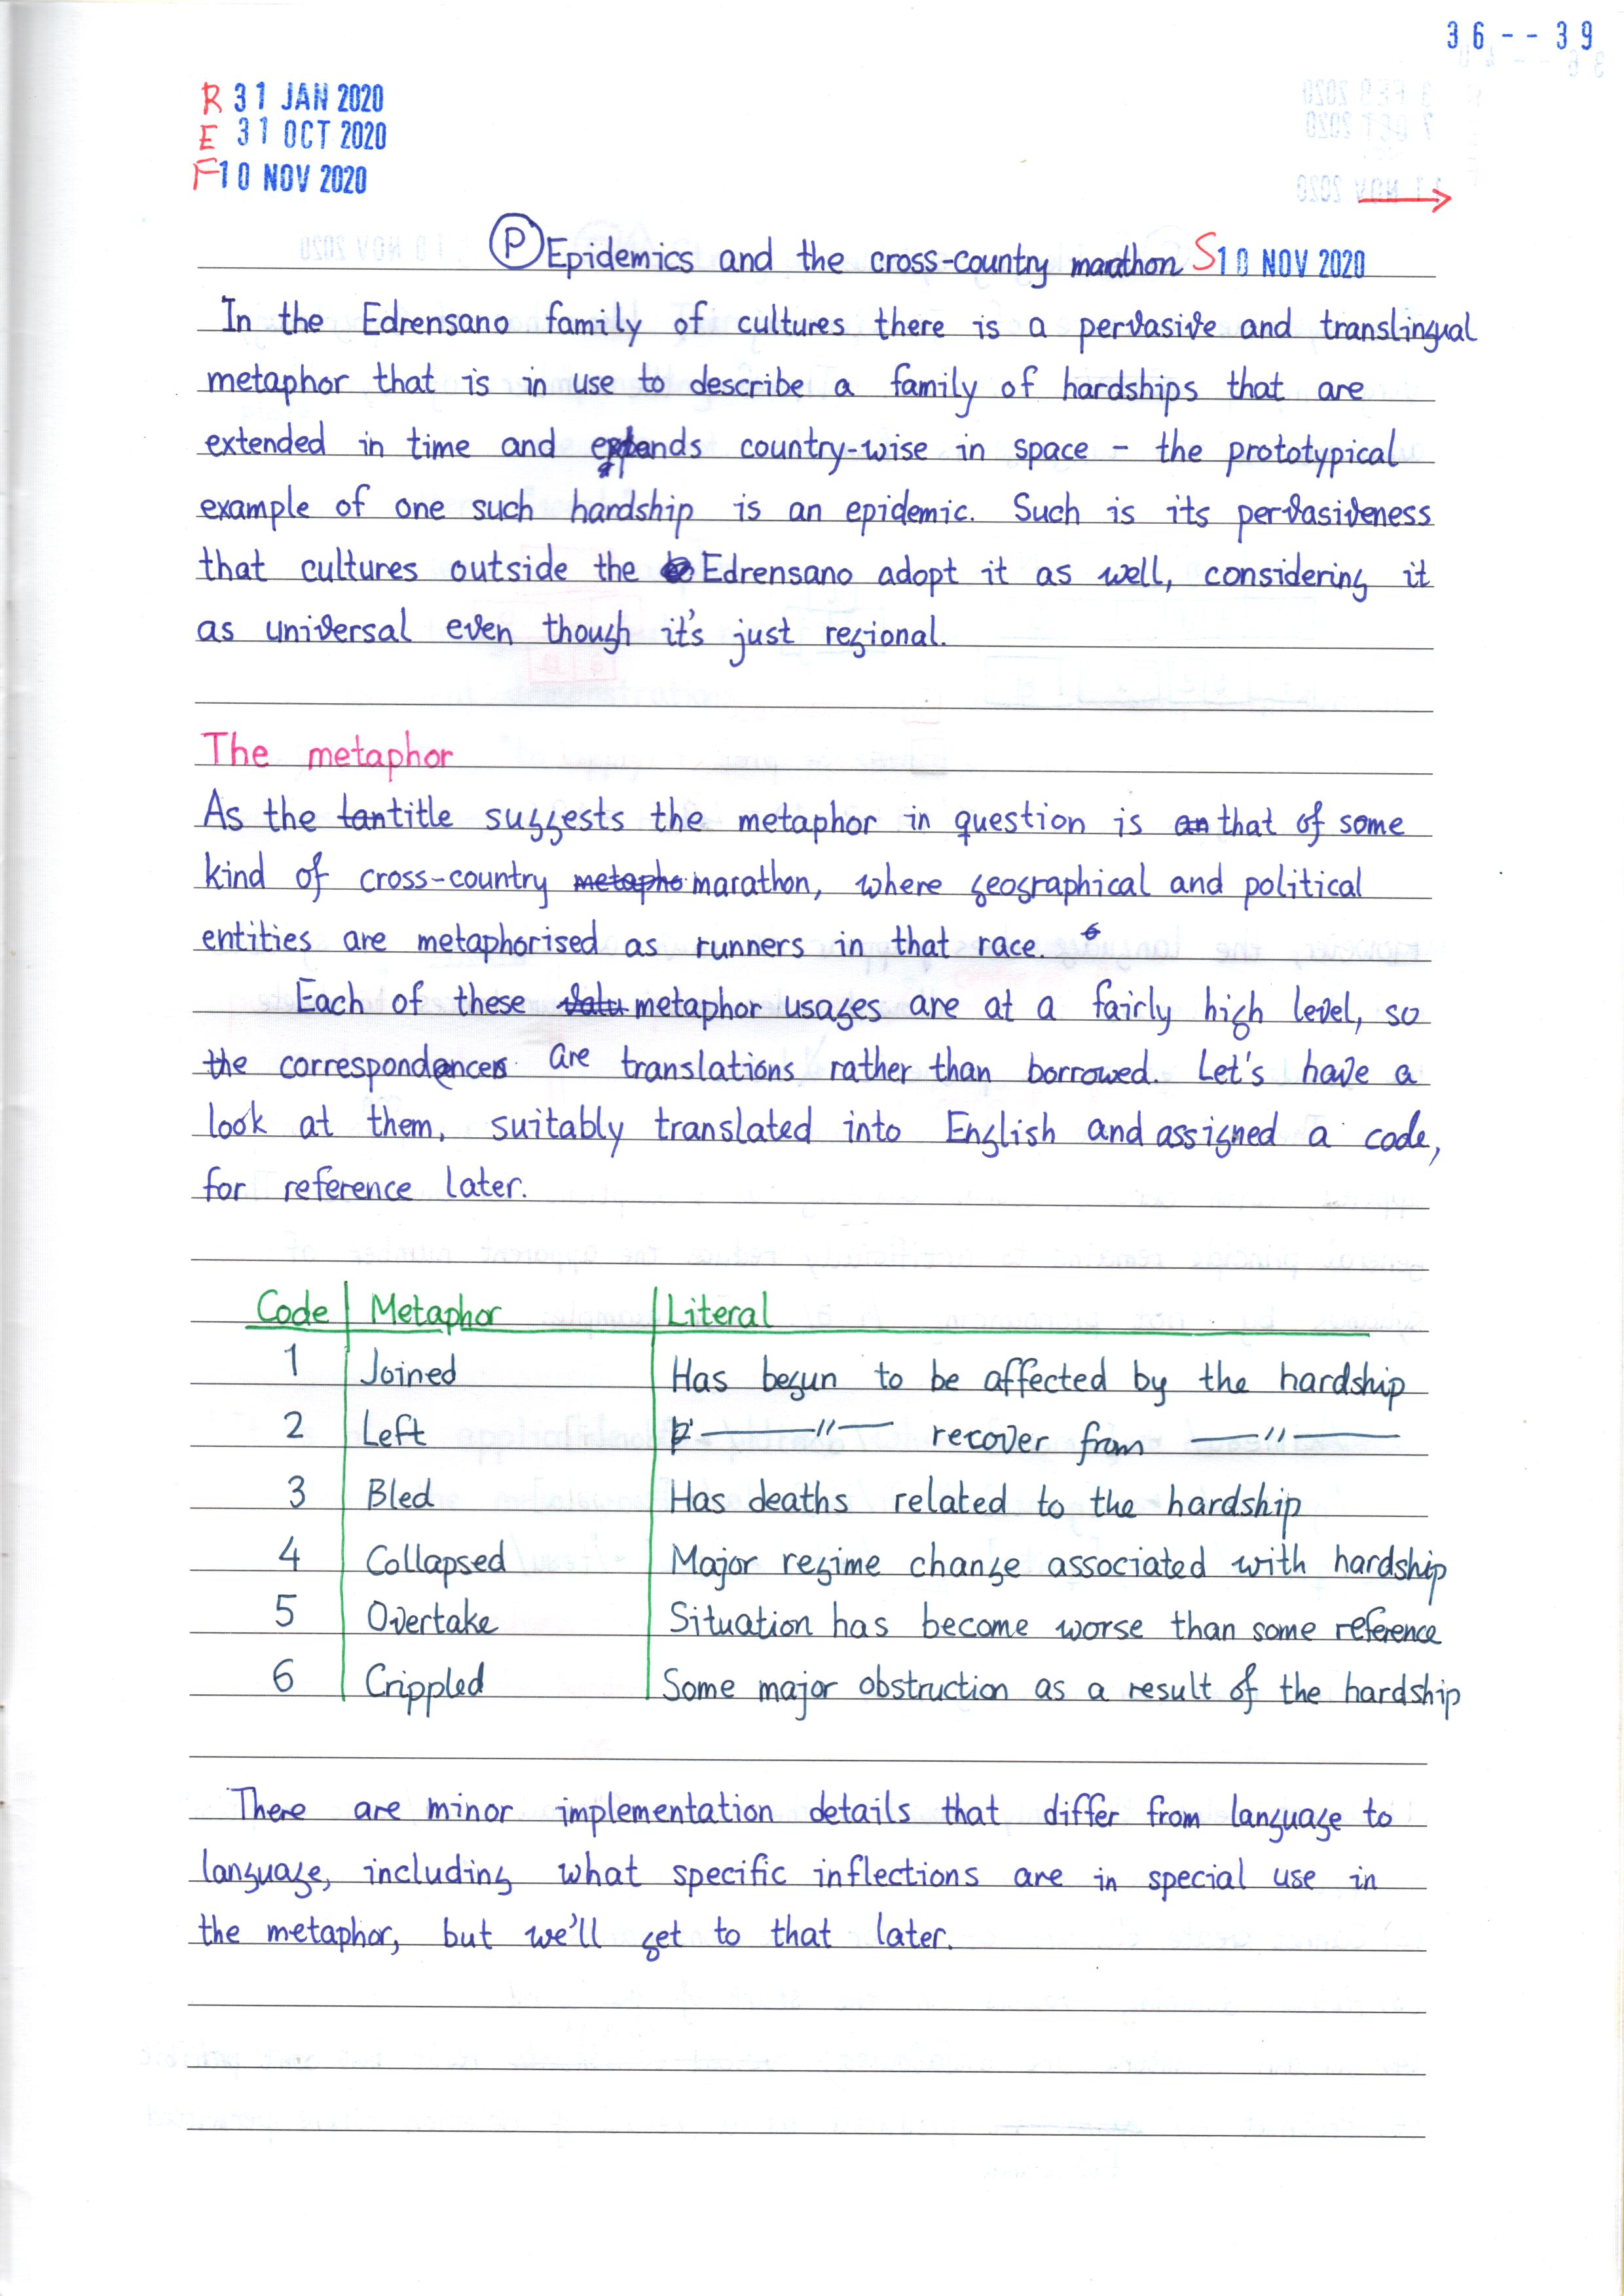 36--39
R 31 JAN 2020
E 31 OCT 2020
F 10 NOV 2020
P Epidemics and the cross-country marathon S 10 NOV 2020
In the Edrensano family of cultures there is a pervasive and translingual
metaphor that is in use to describe a family of hardships that are
extended in time and extends country-wise in space - the prototypical
example of one such hardship is an epidemic. Such is its pervasiveness
that cultures outside the Edrensano adopt it as well, considering it
as universal even though it's just regional.
The metaphor
As the title suggests the metaphor in question is that of some
kind of cross-country marathon, where geographical and political
entities are metaphorised as runners in that race.
Each of these metaphor usages are at a fairly high level, so
the correspondences are translations rather than borrowed. Let's have a
look at them, suitably translated into English and assigned a code,
for reference later.
Code Metaphor Literal
1 Joined Has begun to be affected by the hardship
2 Left —〃— recover from —〃—
3 Bled Has deaths related to the hardship
4 Collapsed Major regime change associated with hardship
5 Overtake Situation has become worse than some reference
6 Crippled Some major obstruction as a result of the hardship
There are minor implementation details that differ from language to
language, including what specific inflections are in special use in
the metaphor, but we'll get to that later.